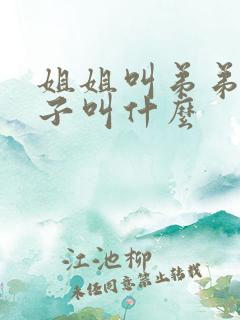 姐姐叫弟弟
子叫什麼
江池柳
未经同意禁止转载